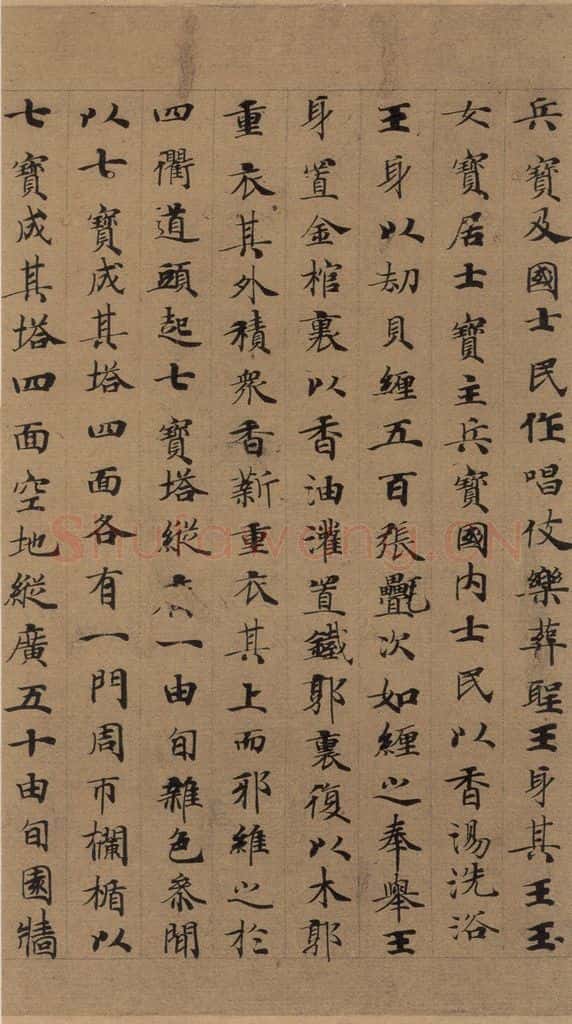 兵寶及國士民作唱伎樂葬聖王身其王玉
女寶居士寶主兵寶國内士民以香湯洗浴
王身以劫貝纏五百張疊次如纏之奉舉王
身置金棺裏以香油灌置鐵郭裏復以木郭
重衣其外積衆香薪重衣其上而耶維之於
四衢道頭起七寶塔縱廣一由旬雜色參間
以七寶成其塔四面各有一門周帀欄楯以
七寶成其塔四面空地縱廣五十由旬園牆